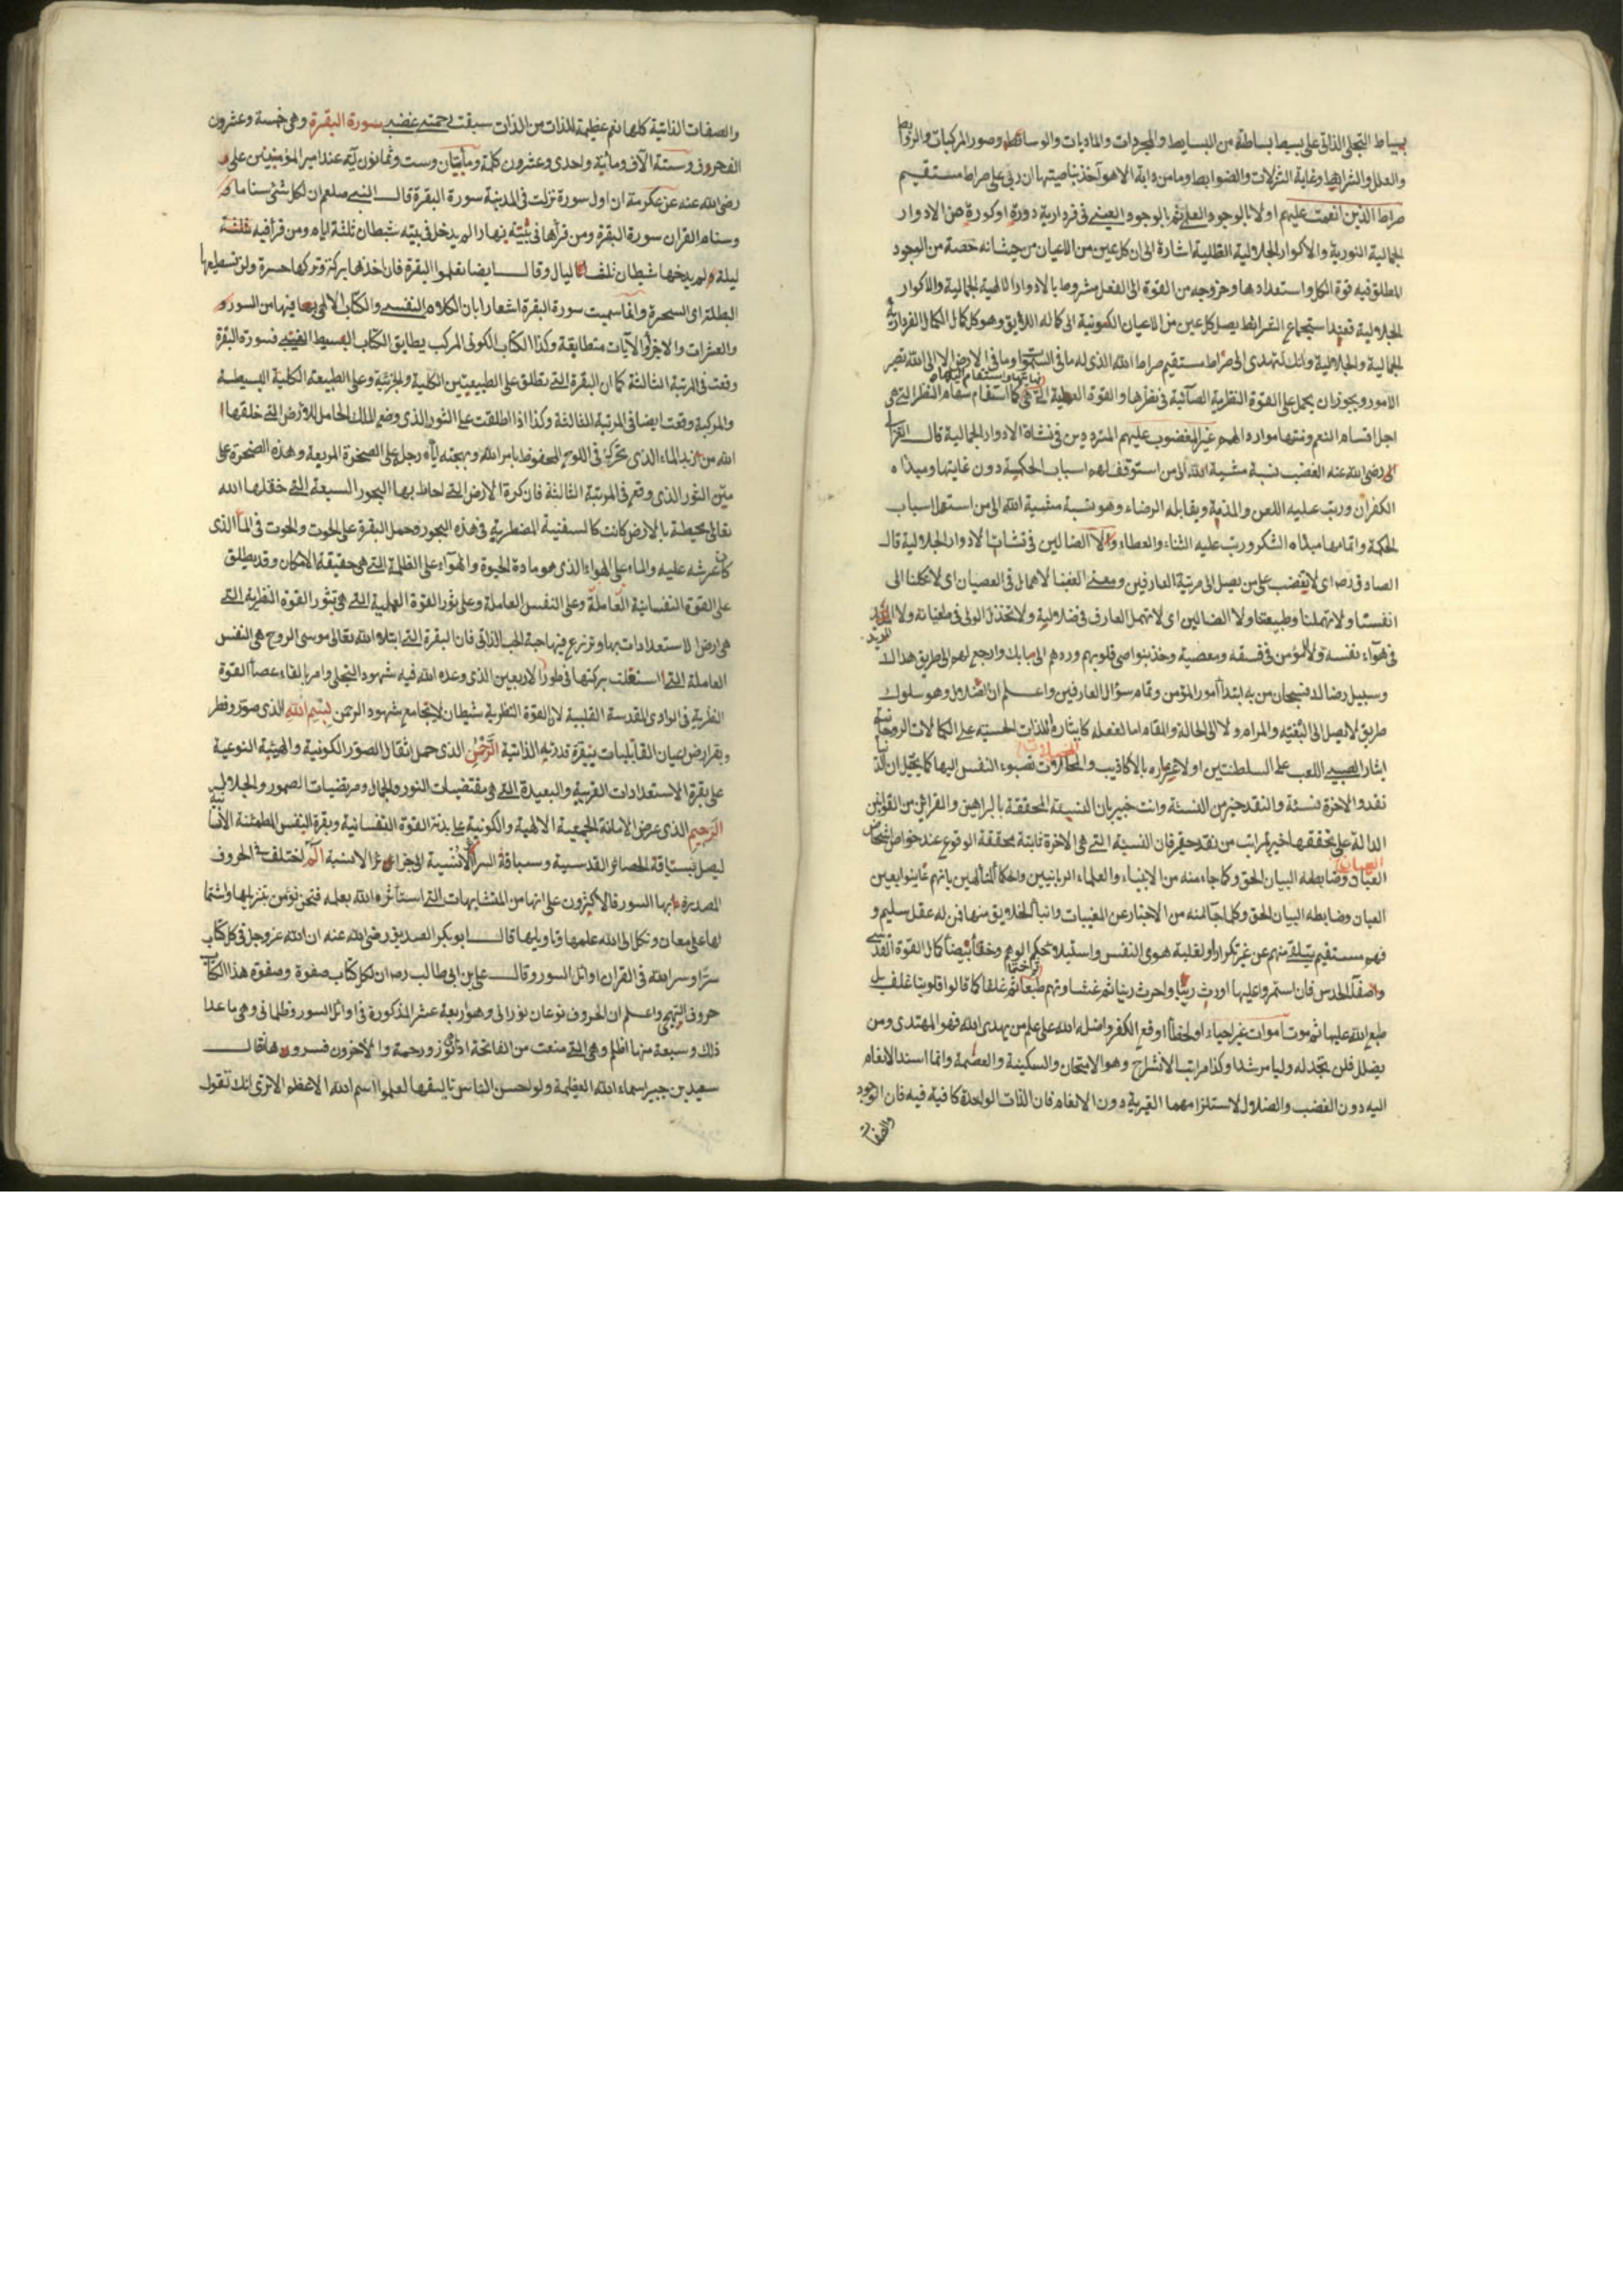 بيساط التجلى الذاتى على بسيط بساطة من البسايط والمجردات والماديات والوسائط وصور المركبات والروابط
والعلل والشرايط وغاية التنزلات والضوابط وما من دابة الا هو آخذ بناصيتها ان ربى على صراط مستقيم
صراط الذين انعمت عليهم اولا بالوجود العلمى ثم بالوجود العينى فى فردارية دورة او كورة من الادوار
الجمالية النورية والاكوار الجلالية الظلية اشارة الى ان كل عين من الاعيان من حيث انه حصة من الوجود
المطلق فيه قوة الكل واستعدادها وخروجه من القوة الى الفعل مشروط بالادوار الالهية الجمالية والاكوار
الجلالية فعند استجماع الشرايط يصل كل عين من الاعيان الكونية الى كماله اللايق وهو كل كمال الكمال الفردارية
الجمالية والجلالية وانك لتهدى الى صراط مستقيم صراط الله الذى له ما فى السموات وما فى الارض الا الى الله تصير
الامور ويجوز ان يحمل على القوة النظرية الصائبة فى نظرها والقوة العملية التى هى
اجل اقسام النعم ومنتها موارد الهمم غير المغضوب عليهم المترددين فى نشاة الادوار الجمالية قال الغزا
لى رضى الله عنه الغضب نسبة مشية الله الى من استوقف لهم اسباب الحكمة دون غايتها ومبداه
الكفران ورتب عليه اللعن والمذمة ويقابله الرضاء وهو نسبة مشية الله الى من استعمل اسباب
الحكمة واتمامها مبداه الشكر ورتب عليه الثناء والعطاء ولا الضالين فى نشات الادوار الجلالية قال
الصادق رض اى لا يغضب على من يصل الى مرتبة العارفين ومعنى الغضب الاهمال فى العصيان اى لا تكلنا الى
انفسنا ولا تهملنا وطبيعتنا ولا الضالين اى لا تهمل العارف فى ضلالية ولا تخذل الولى فى طغيانه ولا المريد
فى هواء نفسه ولا المؤمن فى فسقه ومعصية وخذ بنواصى قلوبهم وردهم الى بابك وارجع لهم الى طريق هداك
وسبيل رضاك فسبحان من به ابتدا امور المؤمن وتمام سؤال العارفين واعلم ان الضلال وهو سلوك
طريق لا يصل الى البغية والمرام ولا الى الحالة والمقام اما لغفله كايثاره اللذات الحسية على الكمالات الروحانية
ايثار الصبى اللعب على السلطنتين او لاغتراره بالاكاذيب والمحالات تصبوء النفس اليها كما يتخيل ان الدنيا
نقد والاخرة نسئة والنقد خير من النسئة وانت خبير بان النسيئة المحققة بالبراهين والقرائن من القوانين
الدالة على تحققها خير بمراتب من نقد حقير فان النسية التى هى الاخرة ثابتة محققة الوقوع عند خواص اشخاص
العباد وضابطه البيان الحق وكما جاء منه من الانبياء والعلماء الربانيين والحكماء المتالهين بانهم عاينوا بعين
العيان وضابطه البيان الحق وكلما جاء منه من الاخبار عن المغيبات وانباء الخلايق منها فمن له عقل سليم و
فهم مستقيم يتلقى منهم عن غير تكرار او لغلبة هوى النفس واستيلاء تحكيم الوهم وخفاء بيضاء كمال القوة القدسية
وصفاء الحدس فان استمروا عليها اورث رينا واحرث رينا ثم غشاوة ثم طبعا ثم غلفا كما قالوا قلوبنا غلف بل
طبع الله عليها ثم موت اموات غير احياء او لخطأ اوقع الكفر واضله الله على علم من يهدى الله فهو المهتدى ومن
يضلل فلن تجد له وليا مرشدا وكذا مراتب الانشراح وهو الامتحان والسكينة والعصمة وانما اسند الانعام
اليه دون الغضب والضلال لاستلزامهما القهرية دون الانعام فان الذات الواحدة كافية فيه فان الوجود
والصفات
والصفات الذاتية كلها نعم عظيمة للذات من الذات سبقت رحمتى غضبى سورة البقرة وهى خمسة وعشرون
الف حروف وستة الآف ومائية واحدى وعشرون كلمة ومأيتان وست وثمانون آية عند امير المؤمنين على
رضى الله عنه عن عكرمة ان اول سورة نزلت فى المدينة سورة البقرة قال النبى صلعم ان لكل شئ سناما
وسنام القران سورة البقرة ومن قرأها فى بيته نهارا لم يدخل فى بيته شيطان ثلثة ايام ومن قرأ فيه
ليلة لم يدخلها شيطان ثلث ليال وقال ايضا تعلموا البقرة فان اخذها بركة وتركها حسرة ولن تستطيعها
البطلة اى السحرة وانما سميت سورة البقرة اشعارا بان الكلام النفسى والكتاب الالهى بما فيها من السور و
والعشرات والاجزاء والآيات متطابقة وكذا الكتاب الكونى المركب يطابق الكتاب البسيط الغيبى فسورة البقرة
وقعت فى المرتبة الثالثة كما ان البقرة التى تطلق على الطبيعيتين الكلية والجزئية وعلى الطبيعة الكلية البسيطة
والمركبة وقعت ايضا فى المرتبة الثالثة وكذا اذا اطلقت على الثور الذى وضع الملك الحامل للارض التى خلقها
الله من زبد الماء الذى تحرك فى اللوح المحفوظ بامر الله وبهجته اياه رجله على الصخرة المربعة وهذه الصخرة على
متن الثور الذى وقع فى المرتبة الثالثة فان كرة الارض التى احاط بها البحور السبعة التى خلقها الله
تعالى محيطة بالارض كانت كالسفينة المضطربة فى هذه البحور وحمل البقرة على الحوت والحوت فى الماء الذى
كان عرشه عليه والماء على الهواء الذى هو مادة الحيوة والهواء على الظلمة التى هى حقيقة الامكان وقد يطلق
على القوة النفسانية العاملة وعلى النفس العاملة وعلى ثور القوة العملية التى هى تثور القوة النظرية التى
هى ارض الاستعدادات بها وتزرع فيها حبة الحب الذاتى فان البقرة التى ابتلاه الله تعالى موسى الروح هى النفس
العاملة التى اشتغلت بركتها فى طور الاربعين الذى وعده الله فيه شهود التجلى وامر بالقاء عصا القوة
النظرية فى الوادى المقدسة القلبية لان القوة النظرية شيطان لا يجامع شهود الرحمن بسم الله الذى صور وفطر
وبقر ارض اعيان القابليات ببقرة قدرته الذاتية الرحمن الذى حمل اثقال الصور الكونية والهيئة النوعية
على بقرة الاستعدادات القريبة والبعيدة التى هى مقتضيات النور والجمال ومرتضيات الصهور والجلالية
الرحيم الذى عرض الامانة الجمعية الالهية والكونية على بدنة القوة النفسانية وبقرة النفس المطمئنة الانسانية
ليصل بسياقة الحصائر القدسية وسباقة السرائر الانسية الى جزائر الانسية الم اختلف فى الحروف
المصدرة بها السور فالاكثرون على انها من المتشابهات التى استأثره الله بعلمه فنحن نؤمن بتنزيلها واشتما
لها على معان ونكل الى الله علمها وتاويلها قال ابو بكر الصديق رضى الله عنه ان الله عز وجل فى كل كتاب
سرا وسر الله فى القران اوائل السور وقال على بن ابى طالب رض ان لكل كتاب صفوة وصفوة هذا الكتاب
حروف التهجى واعلم ان الحروف نوعان نورانى وهو اربعة عشر المذكورة فى اوائل السور وظلمانى وهى ما عدا
ذلك وسبعة منها اظلم وهى التى منعت من الفاتحة اذ هى نور ورحمة والآخرون فسروها قال
سعيد بن جبير اسماء الله العظيمة ولو احسن الناس تاليفها لعلموا اسم الله الاعظم الا ترى انك تقول